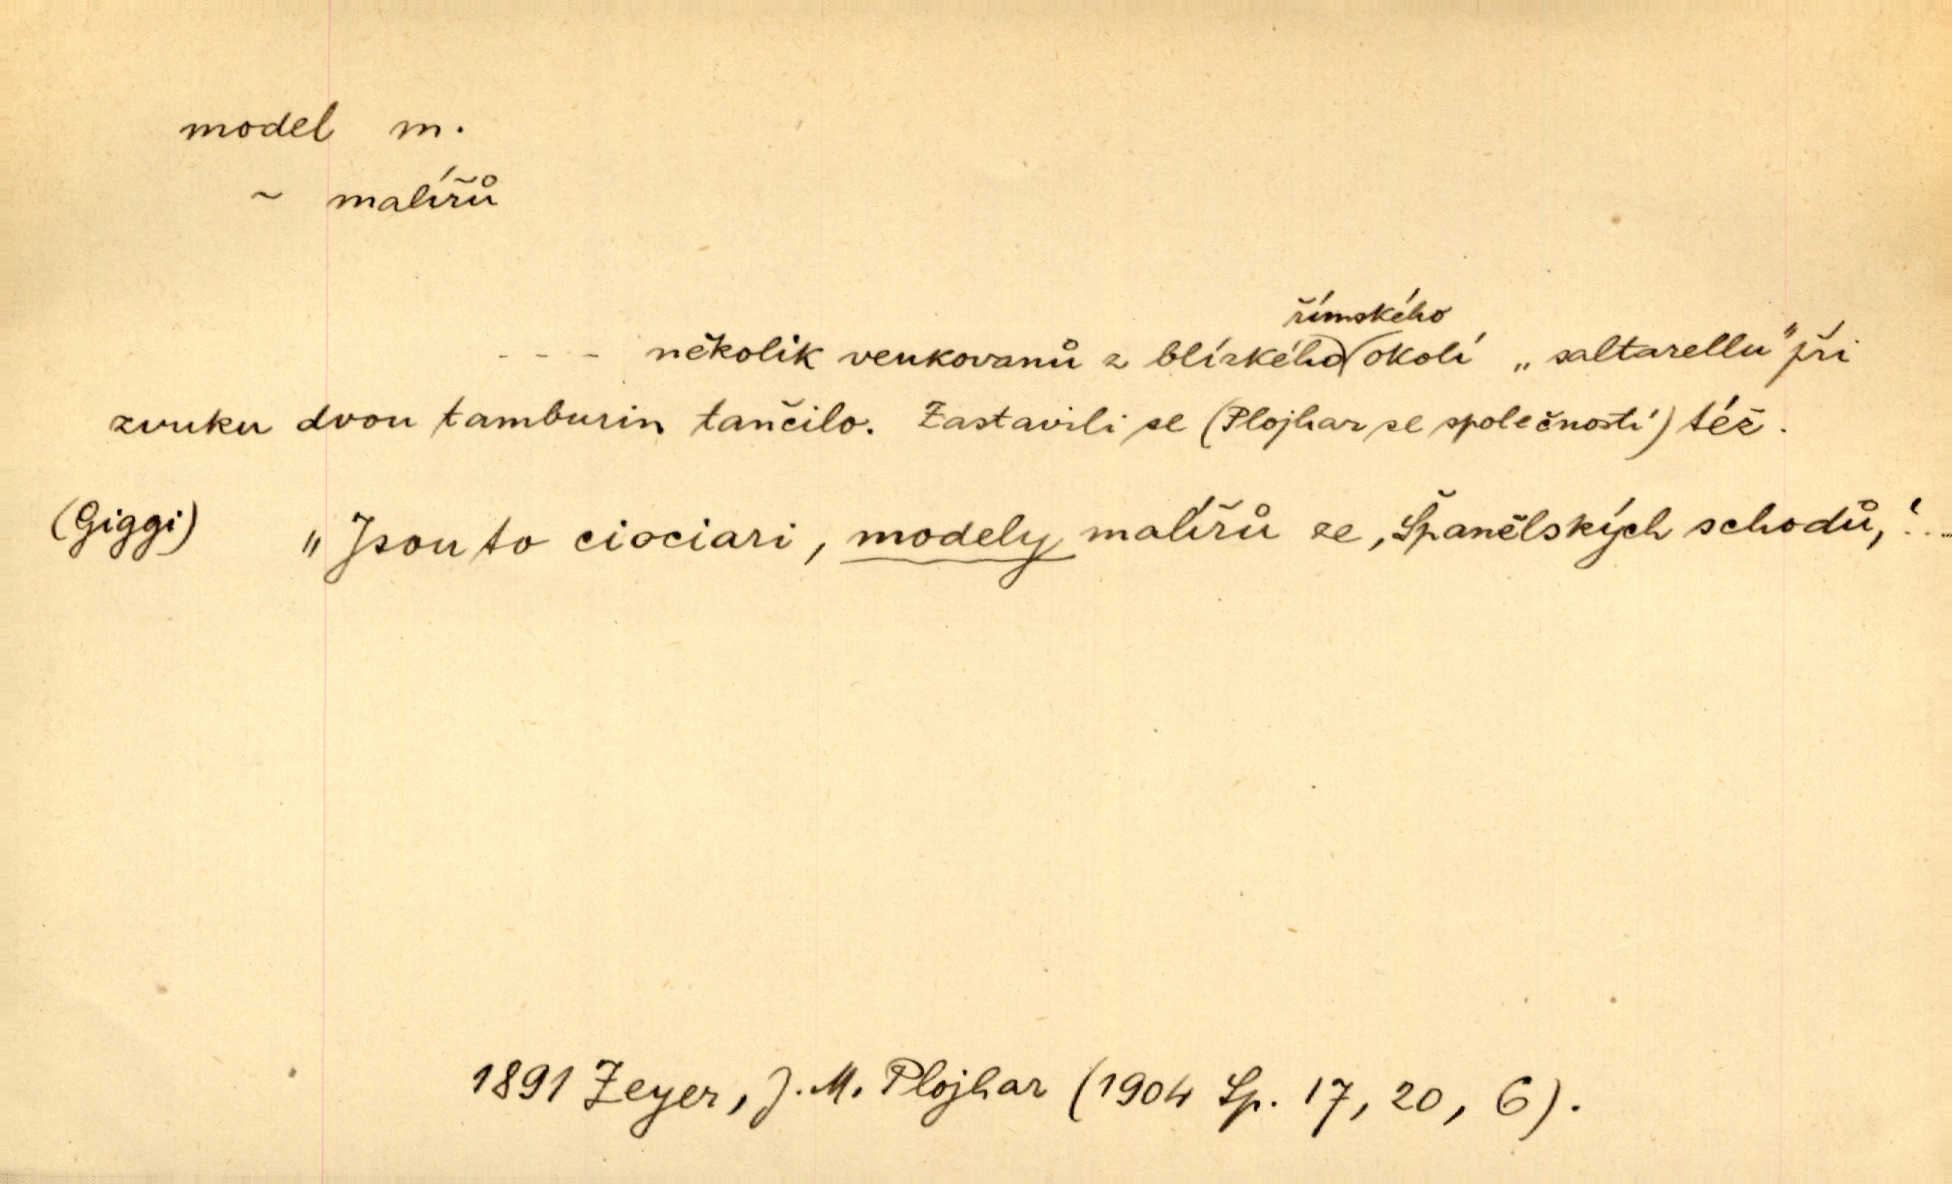 model m.
~ malířů
římského
- - - několik venkovanů z blízkého okolí „saltarellu“ při
zvuku dvou tamburin tančilo. Zastavili se (Plojhar se společností) též.
(Giggi) „Jsou to ciociari, modely malířů ze ‚Španělských schodů,‘...
1891 Zeyer, J. M. Plojhar (1904 Sp. 17, 20, 6).